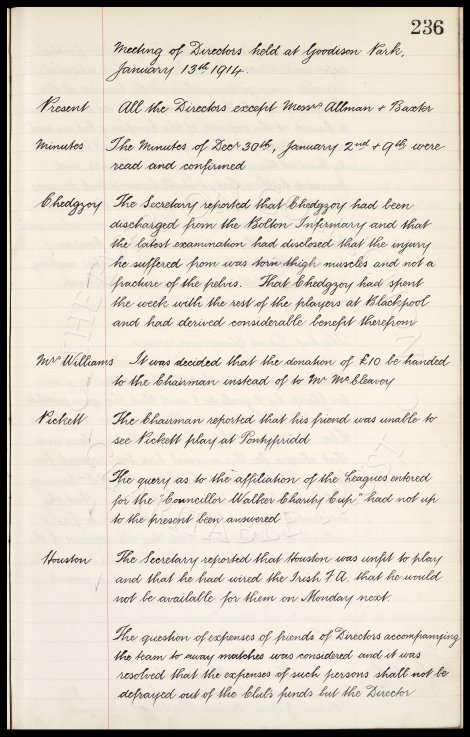 236
Meeting of Directors held at Goodison Park,
January 13th 1914.
Present All the Directors except Messrs Allman + Baxter
Minutes The Minutes of Decr 30th, January 2nd + 9th were
read and confirmed
Chedgzoy The Secretary reported that Chedgzoy had been
discharged from the Bolton Infirmary and that
the latest examination had disclosed that the injury
he suffered from was torn thigh muscles and not a
fracture of the pelvis. That Chedgzoy had spent
the week with the rest of the players at Blackpool
and had derived considerable benefit therefrom
Mrs Williams It was decided that the donation of £10 be handed
to the Chairman instead of to Mr McCleavey
Pickett The Chairman reported that his friend was unable to
see Pickett play at Pontypridd
The query as to the affiliation of the Leagues entered
for the "Councillor Walker Charity Cup" had not up
to the present been answered
Houston The Secretary reported that Houston was unfit to play
and that he had wired the Irish F.A. that he would
not be available for them on Monday next.
The question of expenses of friends of Directors accompanying
the team to away matches was considered and it was
resolved that the expenses of such persons shall not be
defrayed out of the Club's funds but the Director